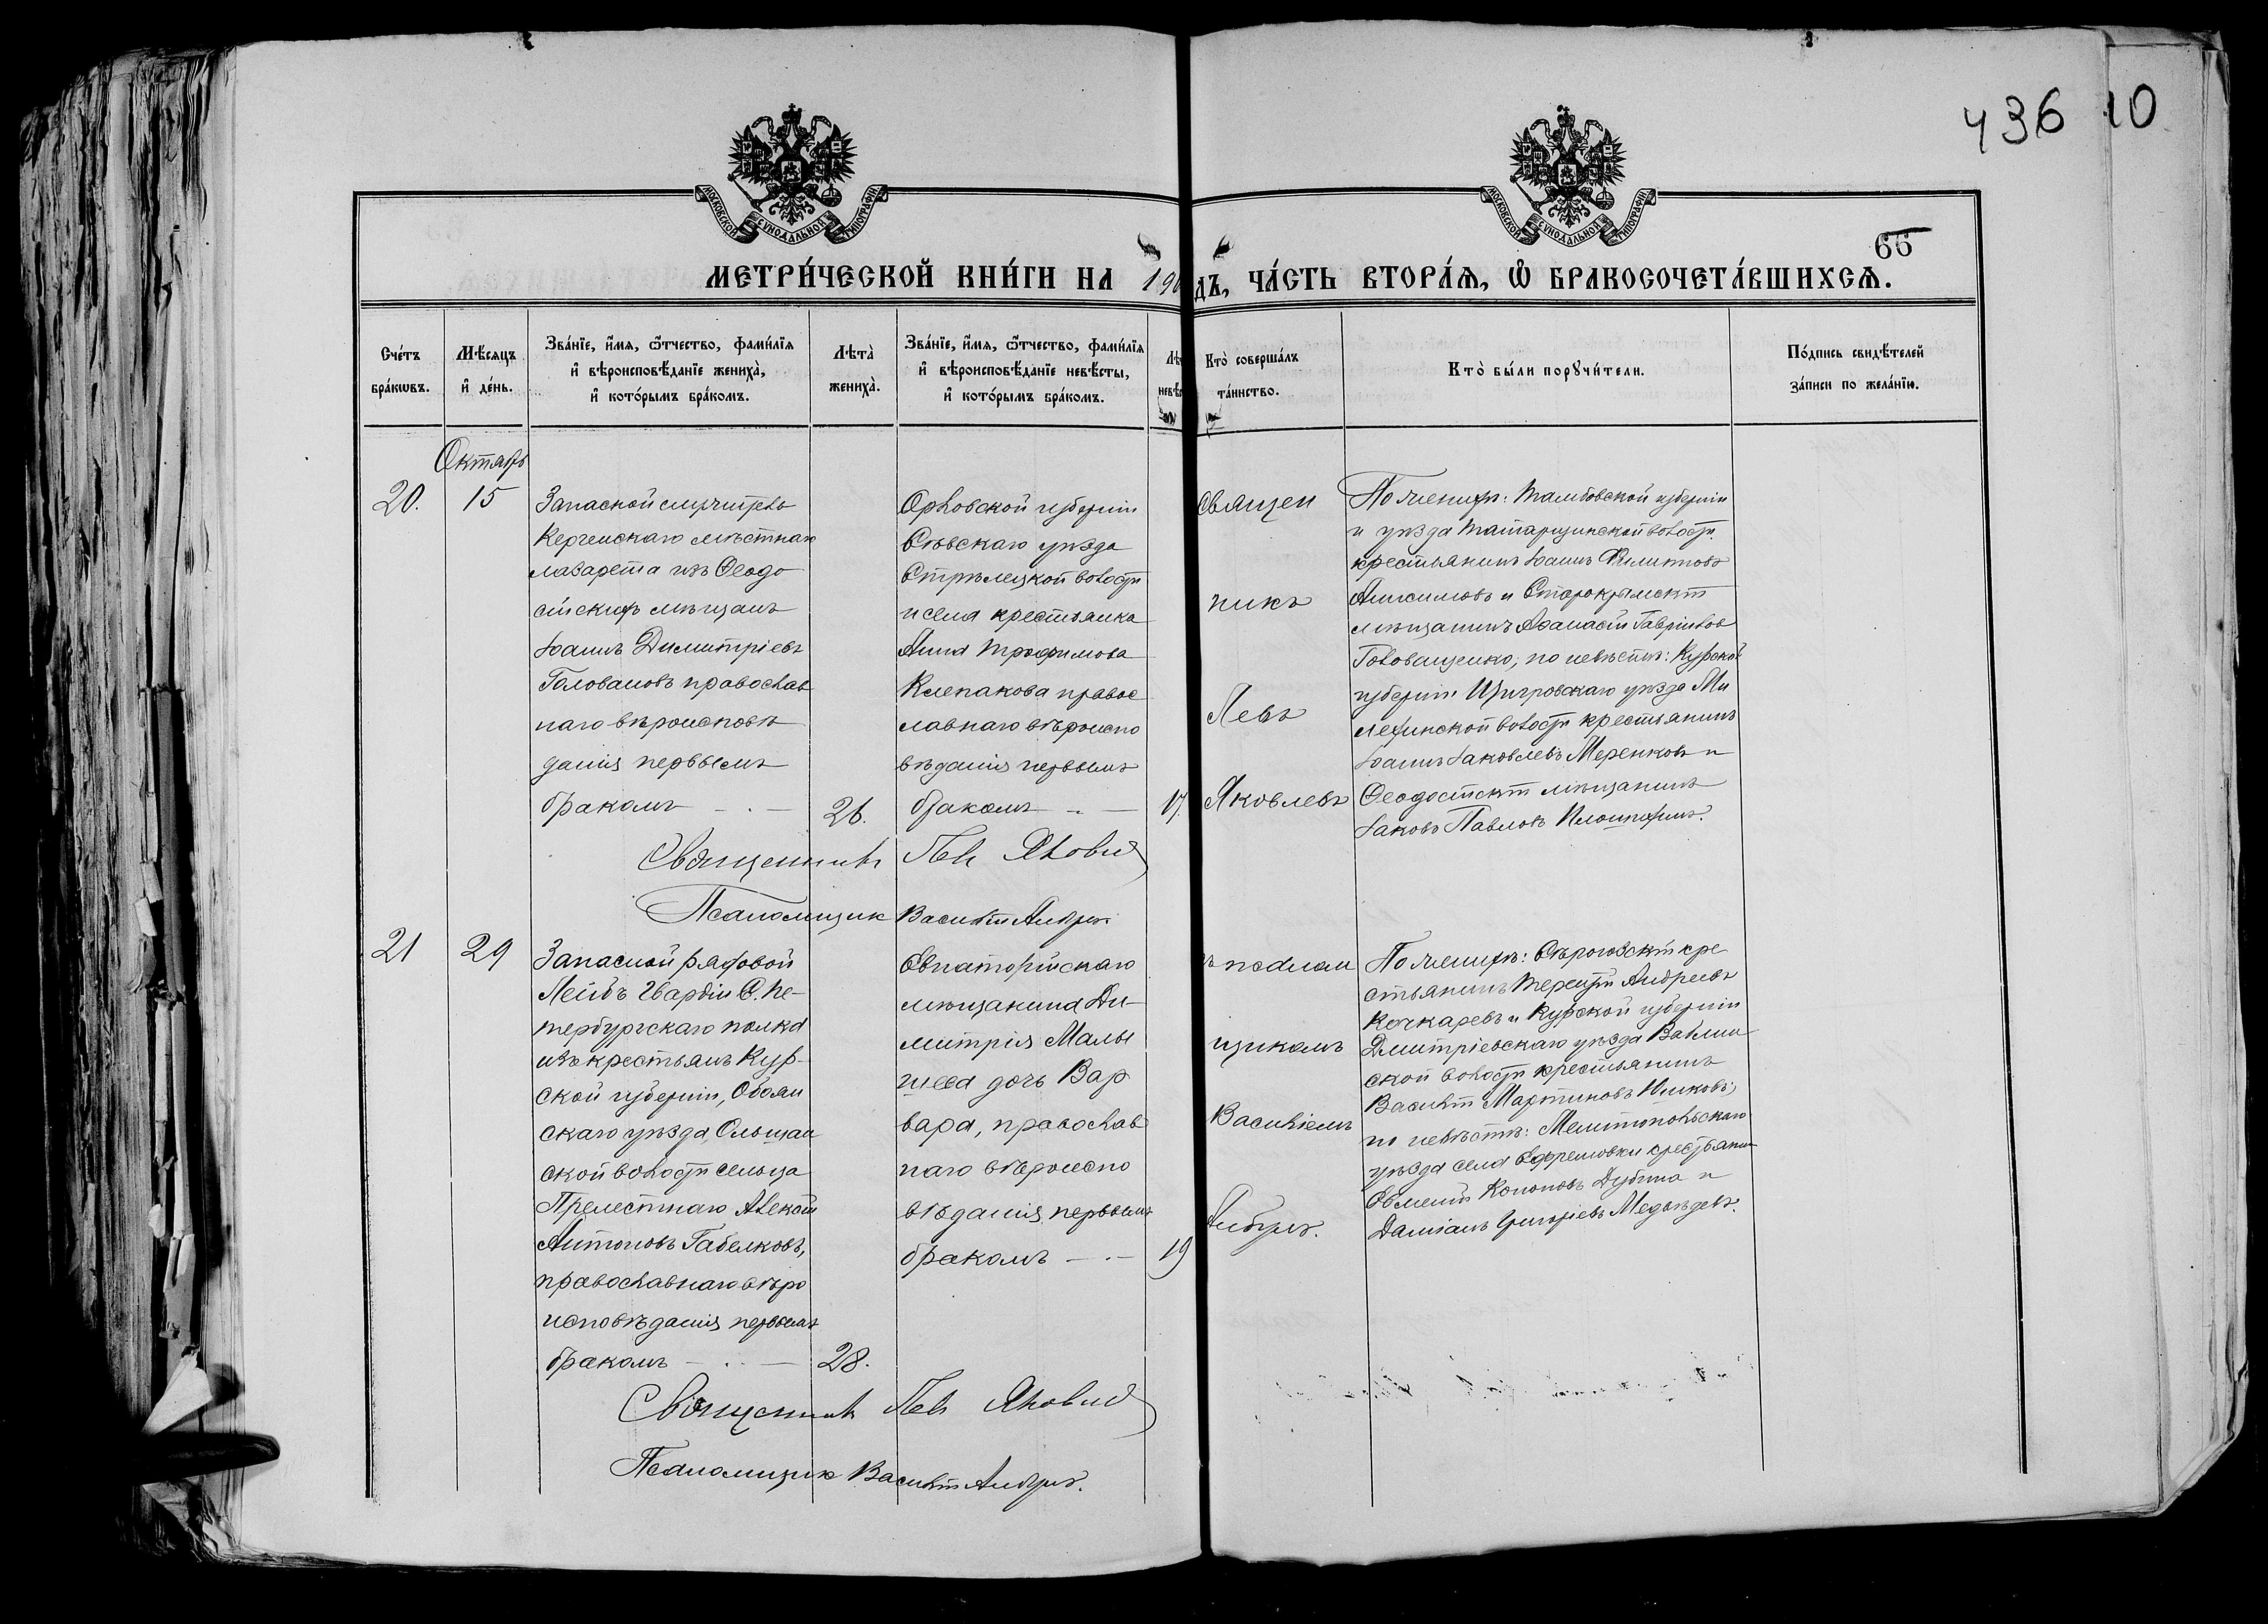 436 10
МОСКОВСКОЙ СѴНОДАЛЬНОЙ ТИПОГРАФІИ
МОСКОВСКОЙ СѴНОДАЛЬНОЙ ТИПОГРАФІИ
66
МЕТРИ́ЧЕСКОЙ КНИ́ГИ НА 190 ДЪ, ЧА́СТЬ ВТОРА́Ѧ, Ѡ҆ БРАКОСОЧЕТА́ВШИХСѦ.
Сче́тъ бра́кѡвъ.
Мѣ́сяцъ и҆ де́нь.
Зва́нїе, и҆́мя, ѻ҆́тчество, фами́лїя
и҆ вѣроисповѣ́данїе жениха̀,
и҆ кото́рымъ бра́комъ.
Лѣта̀ жениха̀.
Зва́нїе, и҆́мя, ѻ҆́тчество, фами́лїя
и҆ вѣроисповѣ́данїе невѣ́сты,
и҆ кото́рымъ бра́комъ.
Лѣ невѣ
Кто̀ соверша́лъ
та́инство.
Кто̀ бы́ли порꙋчи́тели.
По́дпись свидѣ́телей
за́писи по жела́нїю.
Октябрь
20.
15
Запасной служитель
Керченскаго мѣстнаго
лазарета изъ Ѳеодо
сійскихъ мѣщанъ
Іоаннъ Димитріевъ
Головановъ православ
наго вѣроисповѣ
данія первымъ
бракомъ
26.
Орловской губерніи
Сѣвскаго уѣзда
Стрѣлецкой волости
и села крестьянка
Анна Трофимова
Клепакова правос
лавнаго вѣроиспо
вѣданія первымъ
бракомъ
17.
Священ
никъ
Левъ
Яковлевъ
По женихѣ: Тамбовской губерніи
и уѣзда Татарщинской волости
крестьянинъ Іоаннъ Филиповъ
Анисимовъ и Старокрымскій
мѣщанинъ Аѳанасій Гавріиловъ
Головащенко; по невѣстѣ: Курской
губерніи Щигровскаго уѣзда Ми
ленинской волости крестьянинъ
Іоаннъ Іаковлевъ Меренковъ и
Ѳеодосійскій мѣщанинъ
Іаковъ Павловъ
Священникъ Левъ Яковлев
Псаломщик Василій
21
29
Запасной рядовой
Лейбъ Гвардіи С. Пе-
тербургскаго полка
изъ крестьянъ Кур-
ской губерніи, Обоян
скаго уѣзда, Ольшан
ской волости сельца
Прелестнаго Алексій
Антоновъ Габелковъ,
православнаго вѣро
исповѣданія первымъ
бракомъ
28.
Евпаторійскаго
мѣщанина Ди
митрія Малы
шева дочь Вар
вара, православ
наго вѣроиспо
вѣданія первымъ
бракомъ
19
ъ псалом
щикомъ
Василіемъ
По женихѣ: Сѣрогозскій кре
стьянинъ Терентій Андреевъ
Кочкаревъ и Курской губерніи
Дмитріевскаго уѣзда
ской волости крестьянинъ
Василій Мартиновъ
по невѣстѣ: Мелитопольскаго
уѣзда села Ефремовки крестьяни
Евменій Кононовъ Дубина и
Даміанъ Григоріевъ Медвѣдевъ.
Священникъ Левъ Яковлев
Псаломщик Василій